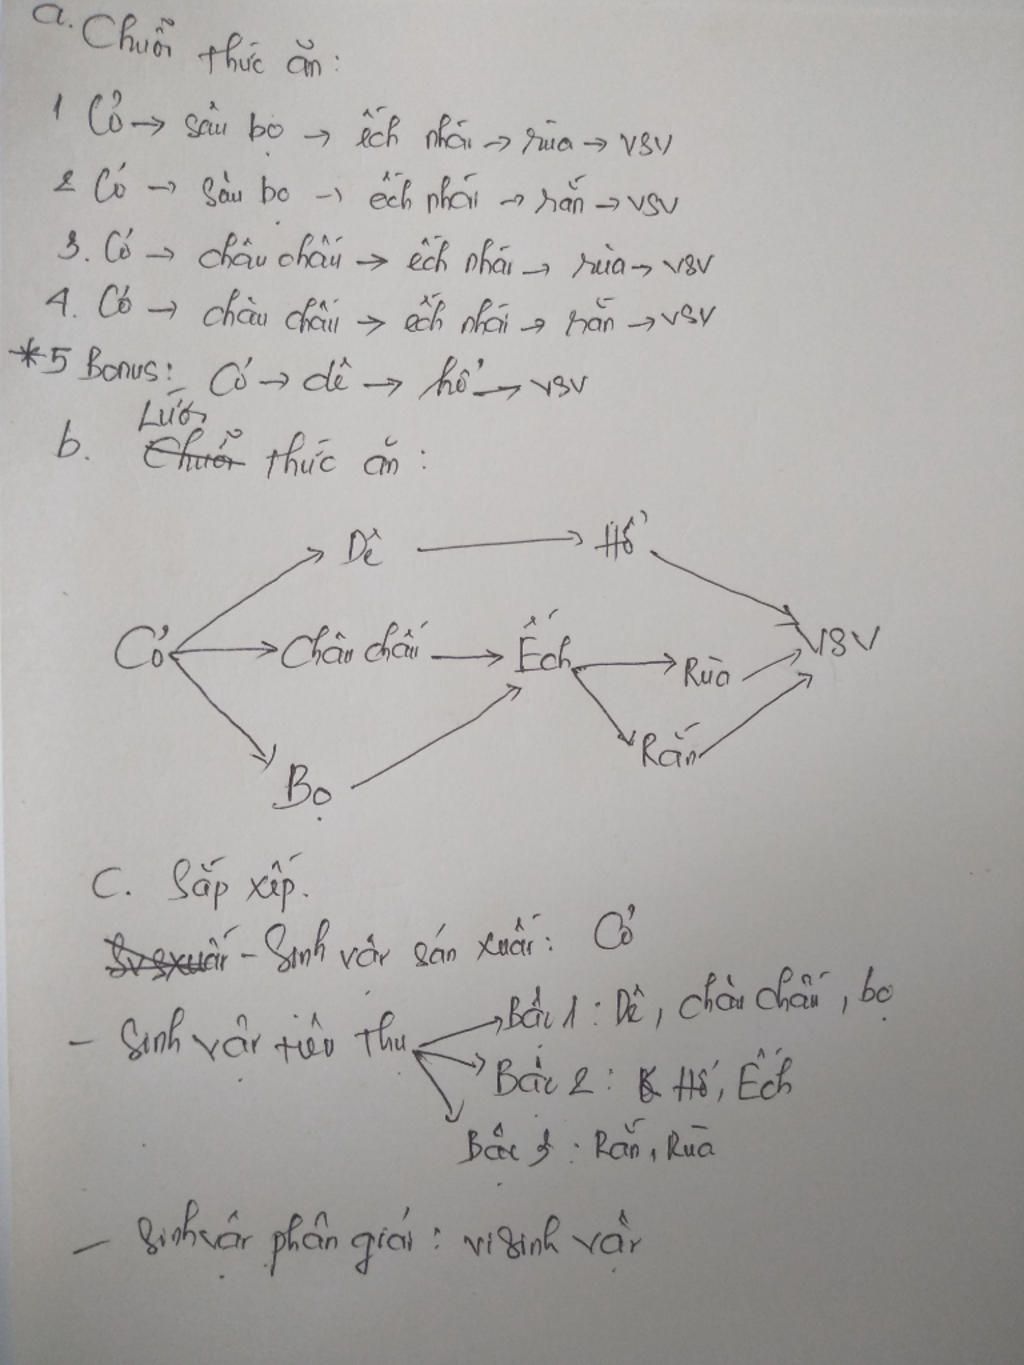 a. Chuỗi thức ăn:
1 Cỏ → sâu bọ → ếch nhái → rùa → VSV
2 Cỏ → sâu bọ → ếch nhái → rắn → VSV
3. Cỏ → châu chấu → ếch nhái → rùa → VSV
4. Cỏ → châu chấu → ếch nhái → rắn → VSV
*5 Bonus: Cỏ → dê → hổ → VSV
Lưới
b. Chuỗi thức ăn:
Dê → Hổ
Cỏ → Châu chấu → Ếch → Rùa → VSV
Rắn
Bọ
C. Sắp xếp.
Svsxuất - Sinh vật sản xuất: Cỏ
- Sinh vật tiêu thụ → Bậc 1: Dê, châu chấu, bọ
→ Bậc 2: Hổ, Ếch
Bậc 3: Rắn, Rùa
- Sinh vật phân giải: vi sinh vật